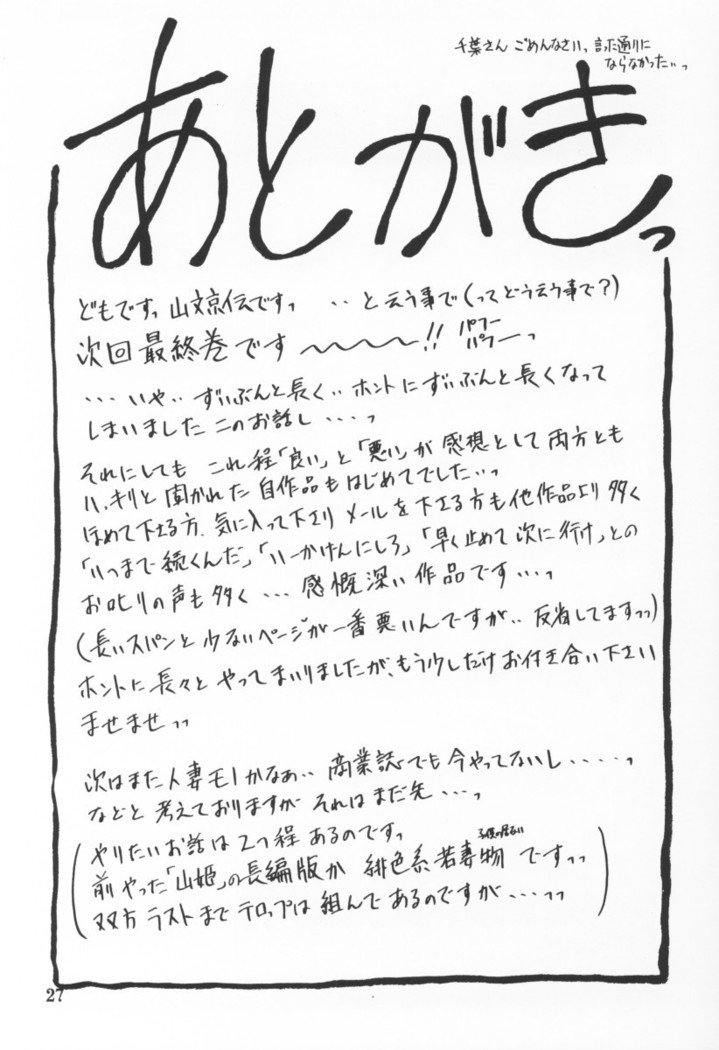 千葉さん ごめんなさいっ 言った通りに
ならなかった…っ
あとがきっ
どもですっ 山文京伝ですっ ‥と云う事で(ってどう云う事で?)
次回最終巻です〜〜〜〜!! パフーパフーっ
…いや‥ずいぶんと長く‥ホントにずいぶんと長くなって
しまいましたこのお話し…っ
それにしても これ程「良い」と「悪い」が 感想として 両方とも
ハッキリと聞かれた自作品もはじめてでした…っ
ほめて下さる方、気に入って下さり メールを下さる方も他作品より多く
「いつまで続くんだ」、「いーかげんにしろ」、「早く止めて次に行け」との
お叱りの声も多く…感慨深い作品です…っ
(長いスパンと少ないページが一番悪いんですが‥反省してますっっ)
ホントに長々とやってまいりましたが、もう少しだけお付き合い下さい
ませませっっ
次はまた人妻モノかなぁ‥商業誌でも今やってないし‥‥っ
などと考えておりますが それはまだ先…っ
やりたいお話は2つ程あるのですっ
前やった「山姫」の長編版か 緋色系若妻物ですっっ
双方ラストまでプロップは組んであるのですが…っっ
27